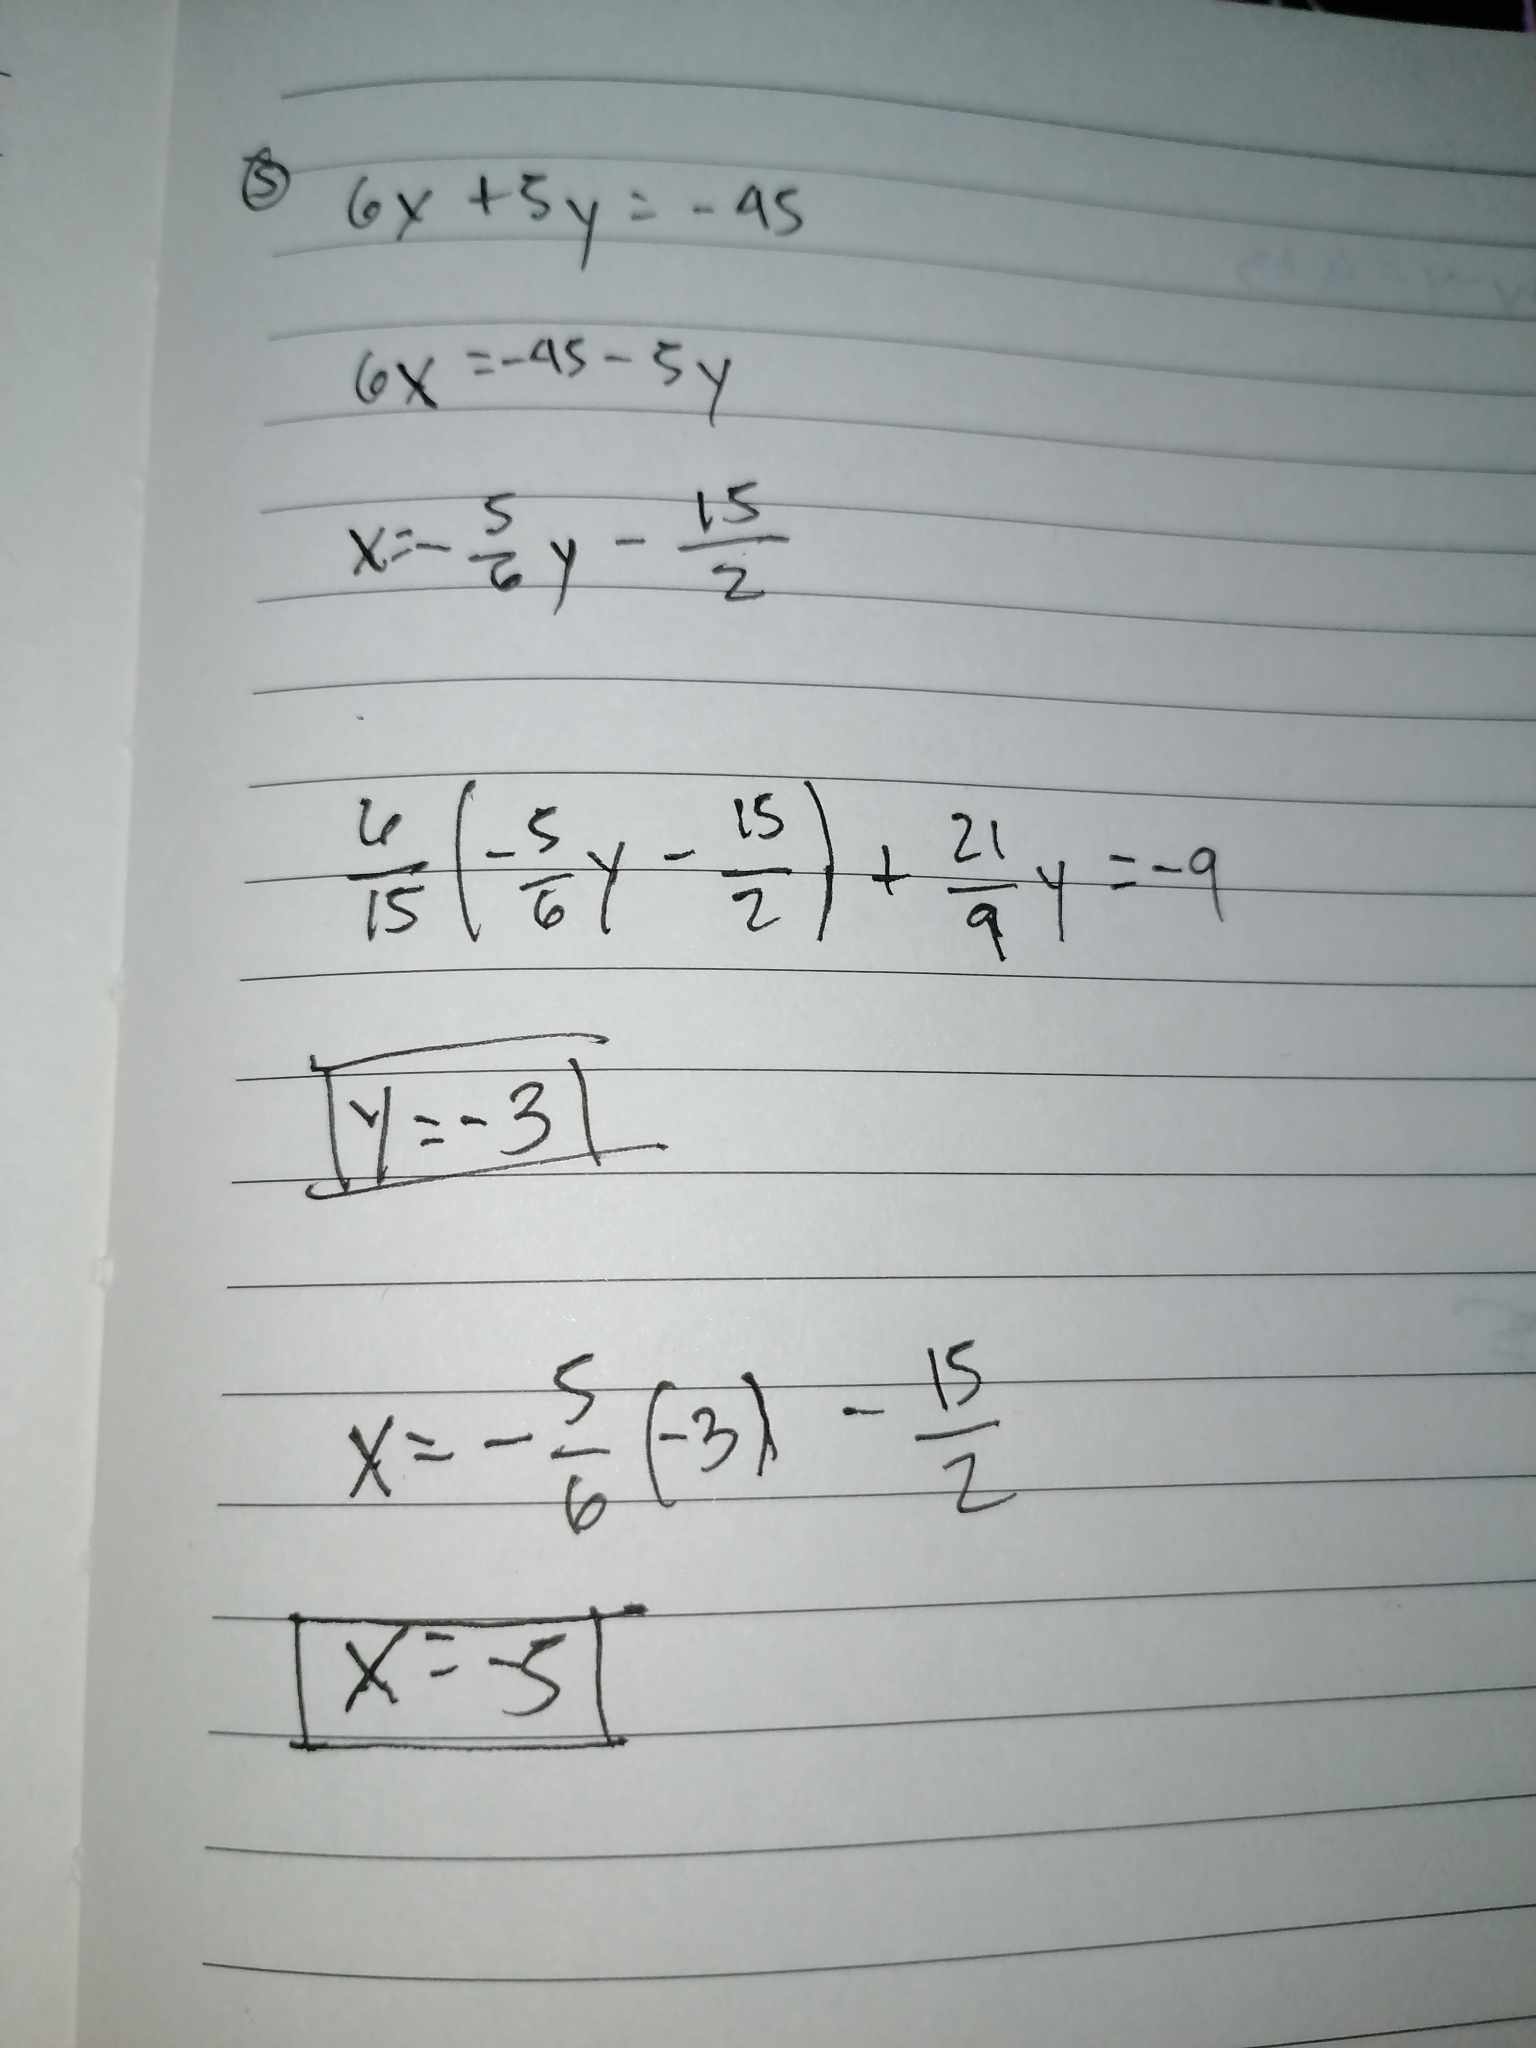 ⑤ 6x + 5y = -45
6x = -45 - 5y
x = - 5/6 y - 15/2
6/15 ( -5/6 y - 15/2 ) + 21/9 y = -9
y = -3
x = - 5/6 (-3) - 15/2
x = -5